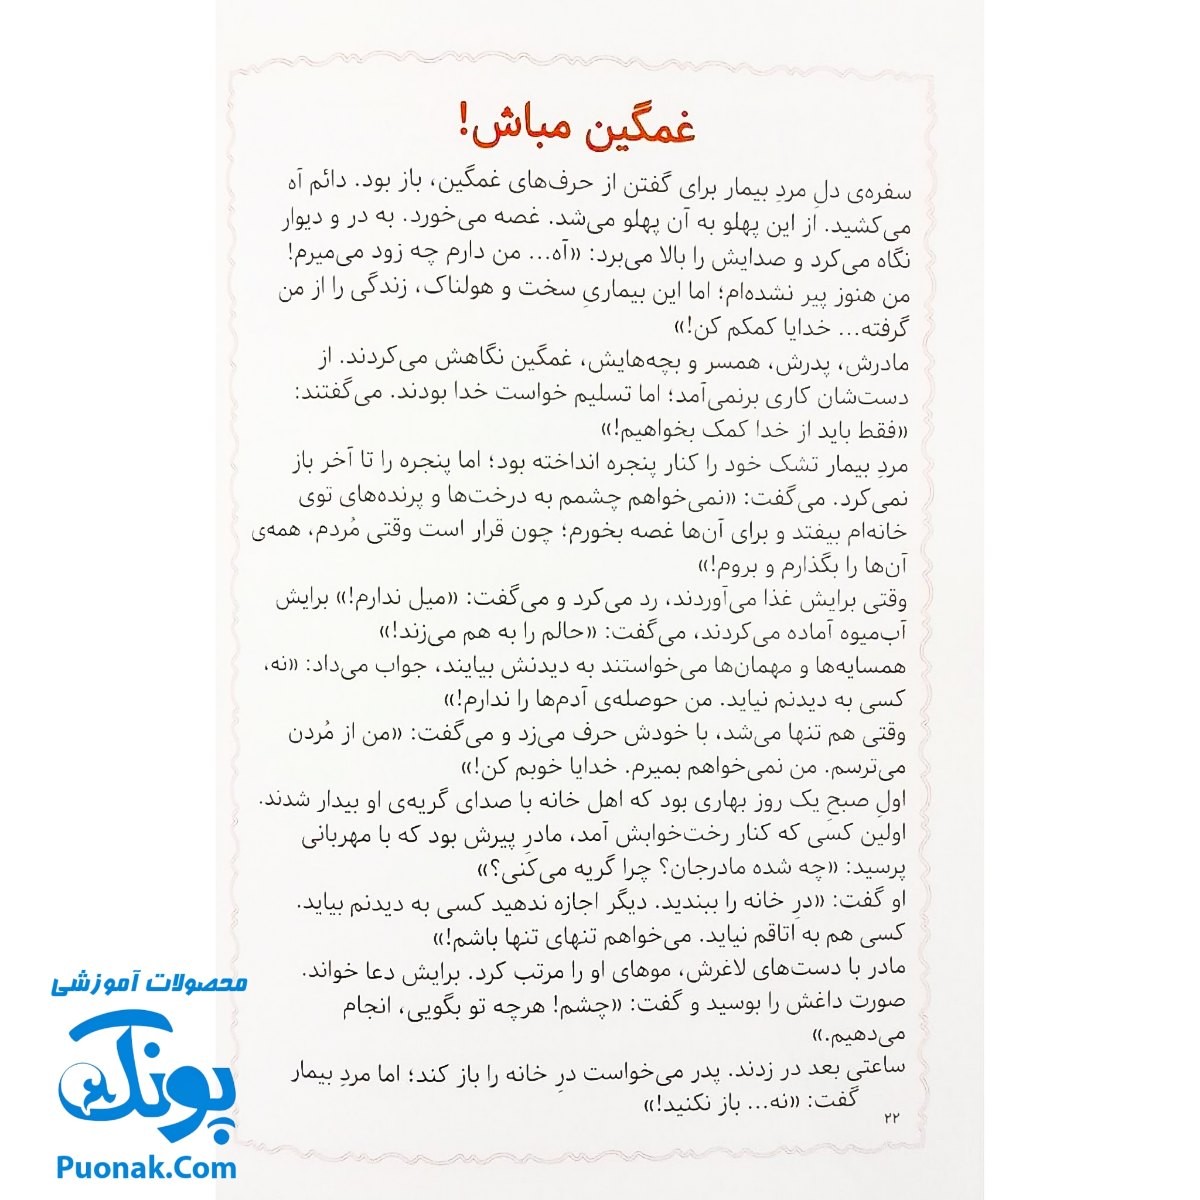 غمگین مباش!
سفره‌ی دلِ مردِ بیمار برای گفتن از حرف‌های غمگین، باز بود. دائم آه
می‌کشید. از این پهلو به آن پهلو می‌شد. غصه می‌خورد. به در و دیوار
نگاه می‌کرد و صدایش را بالا می‌برد: «آه... من دارم چه زود می‌میرم!
من هنوز پیر نشده‌ام؛ اما این بیماریِ سخت و هولناک، زندگی را از من
گرفته... خدایا کمکم کن!»
مادرش، پدرش، همسر و بچه‌هایش، غمگین نگاهش می‌کردند. از
دست‌شان کاری برنمی‌آمد؛ اما تسلیم خواست خدا بودند. می‌گفتند:
«فقط باید از خدا کمک بخواهیم!»
مردِ بیمار تشک خود را کنار پنجره انداخته بود؛ اما پنجره را تا آخر باز
نمی‌کرد. می‌گفت: «نمی‌خواهم چشمم به درخت‌ها و پرنده‌های توی
خانه‌ام بیفتد و برای آن‌ها غصه بخورم؛ چون قرار است وقتی مُردم، همه‌ی
آن‌ها را بگذارم و بروم!»
وقتی برایش غذا می‌آوردند، رد می‌کرد و می‌گفت: «میل ندارم!» برایش
آب‌میوه آماده می‌کردند، می‌گفت: «حالم را به هم می‌زند!»
همسایه‌ها و مهمان‌ها می‌خواستند به دیدنش بیایند، جواب می‌داد: «نه،
کسی به دیدنم نیاید. من حوصله‌ی آدم‌ها را ندارم!»
وقتی هم تنها می‌شد، با خودش حرف می‌زد و می‌گفت: «من از مُردن
می‌ترسم. من نمی‌خواهم بمیرم. خدایا خوبم کن!»
اولِ صبحِ یک روز بهاری بود که اهل خانه با صدای گریه‌ی او بیدار شدند.
اولین کسی که کنار رخت‌خوابش آمد، مادرِ پیرش بود که با مهربانی
پرسید: «چه شده مادرجان؟ چرا گریه می‌کنی؟»
او گفت: «درِ خانه را ببندید. دیگر اجازه ندهید کسی به دیدنم بیاید.
کسی هم به اتاقم نیاید. می‌خواهم تنهای تنها باشم!»
مادر با دست‌های لاغرش، موهای او را مرتب کرد. برایش دعا خواند.
صورت داغش را بوسید و گفت: «چشم! هرچه تو بگویی، انجام
می‌دهیم.»
ساعتی بعد در زدند. پدر می‌خواست درِ خانه را باز کند؛ اما مردِ بیمار
گفت: «نه... باز نکنید!»
۲۲
محصولات آموزشی
پونک
Puonak.Com